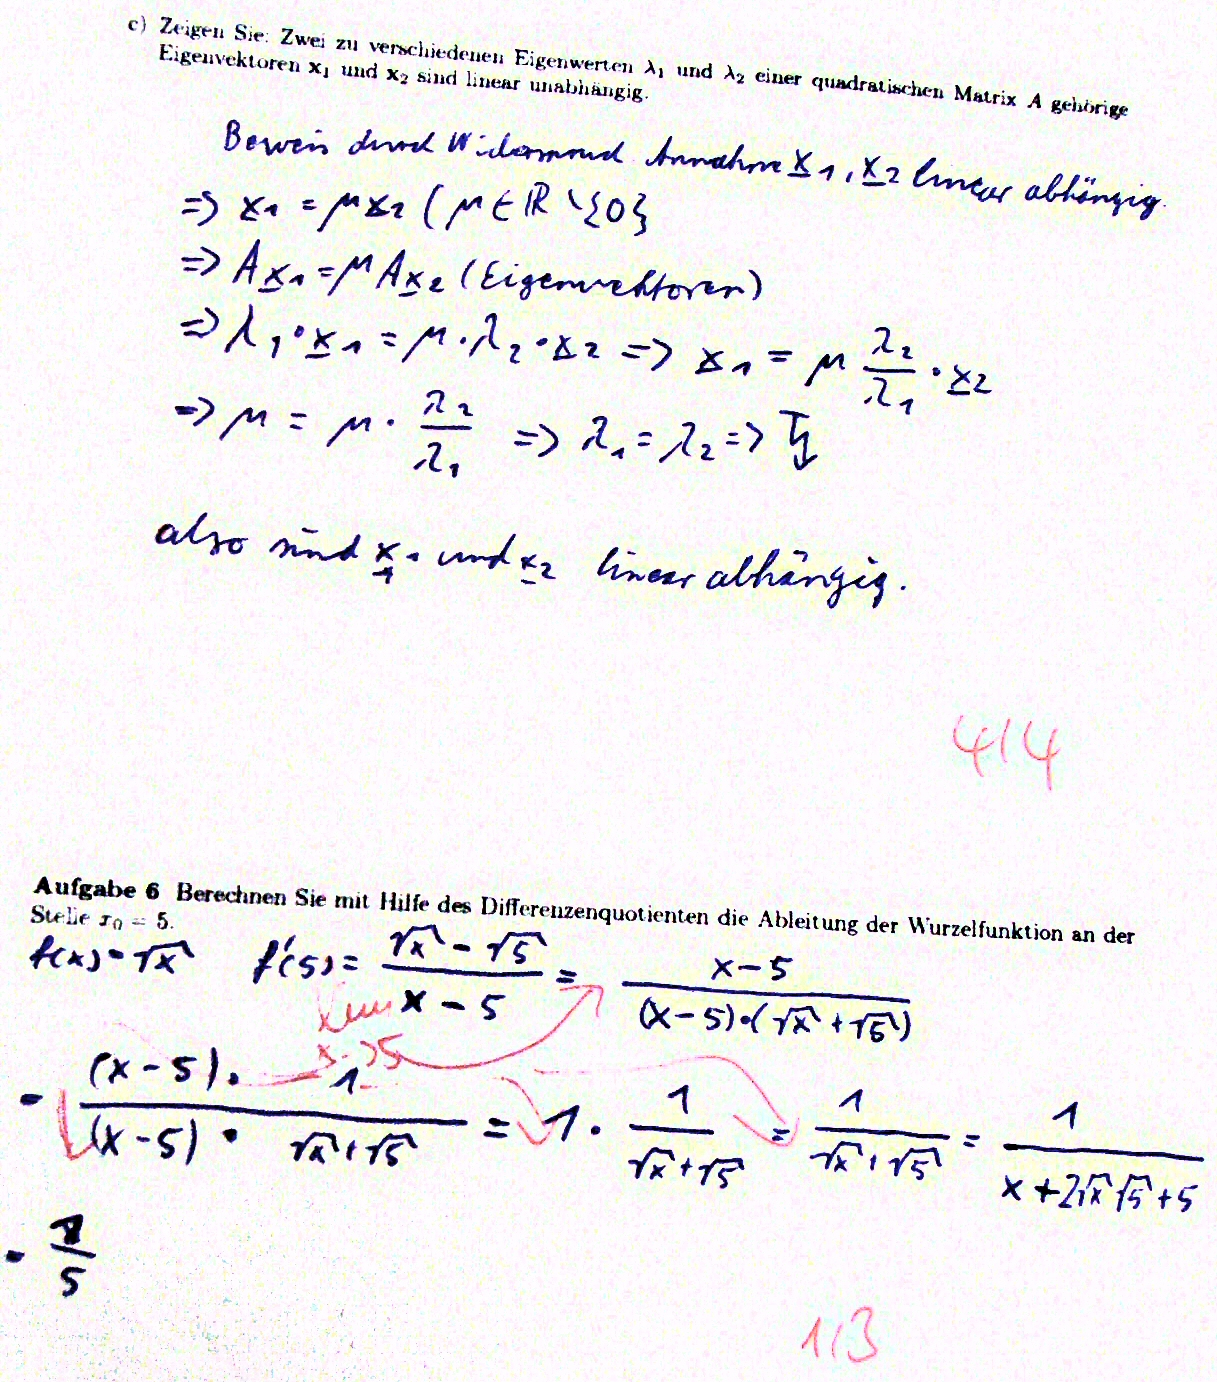 c) Zeigen Sie: Zwei zu verschiedenen Eigenwerten λ₁ und λ₂ einer quadratischen Matrix A gehörige
Eigenvektoren x₁ und x₂ sind linear unabhängig.
Beweis durch Widerspruch Annahme x₁, x₂ linear abhängig.
=> x₁ = μx₂ (μ ∈ ℝ \ {0}
=> Ax₁ = μAx₂ (Eigenvektoren)
=> λ₁ · x₁ = μ · λ₂ · x₂ => x₁ = μ λ₂/λ₁ · x₂
=> μ = μ · λ₂/λ₁ => λ₁ = λ₂ =>
also sind x₁ und x₂ linear abhängig.
4/4
Aufgabe 6 Berechnen Sie mit Hilfe des Differenzenquotienten die Ableitung der Wurzelfunktion an der
Stelle x₀ = 5.
f(x) = √x f'(5) = (√x - √5)/(x - 5) = (x-5)/((x-5)·(√x + √5))
lim x->5
= ((x-5) · 1)/((x-5) · √x+√5) = 1 · 1/(√x+√5) = 1/(√x+√5) = 1/(x+2√x√5+5)
= /5
1/3